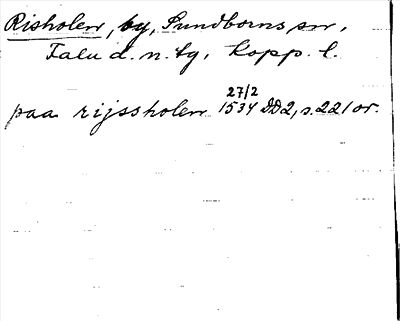 Risholen, by, Sundborns sn,
Falu d. n. tg, Kopp. l.
27/2
paa rijssholen 1534 DD2, s. 221 or.